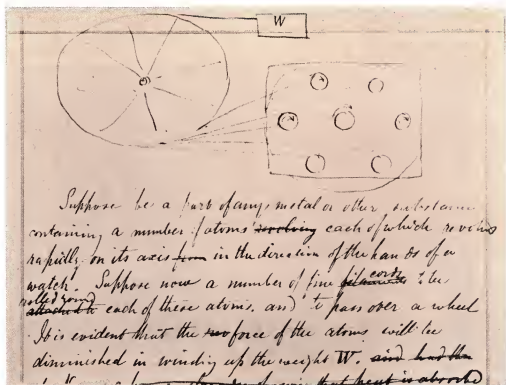 W
Suppose be a part of any metal or other substance
containing a number of atoms revolving each of which revolves
rapidly on its axis from in the direction of the hands of a
watch. Suppose now a number of fine filaments cords to be
attached to rolled round each of these atoms, and to pass over a wheel
It is evident that the force of the atoms will be
diminished in winding up the weight W. and had the
that heat is absorbed